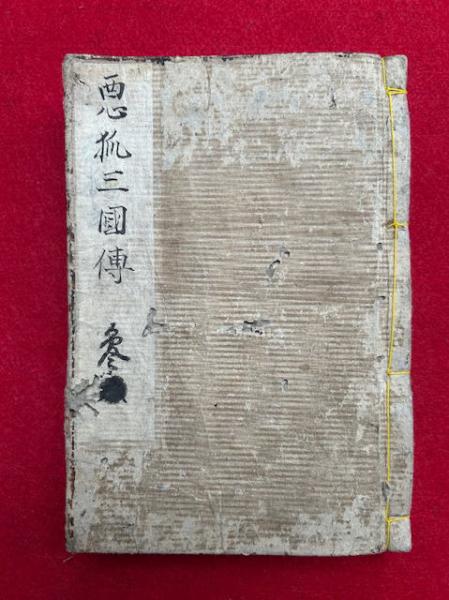 悪狐三國傳
参